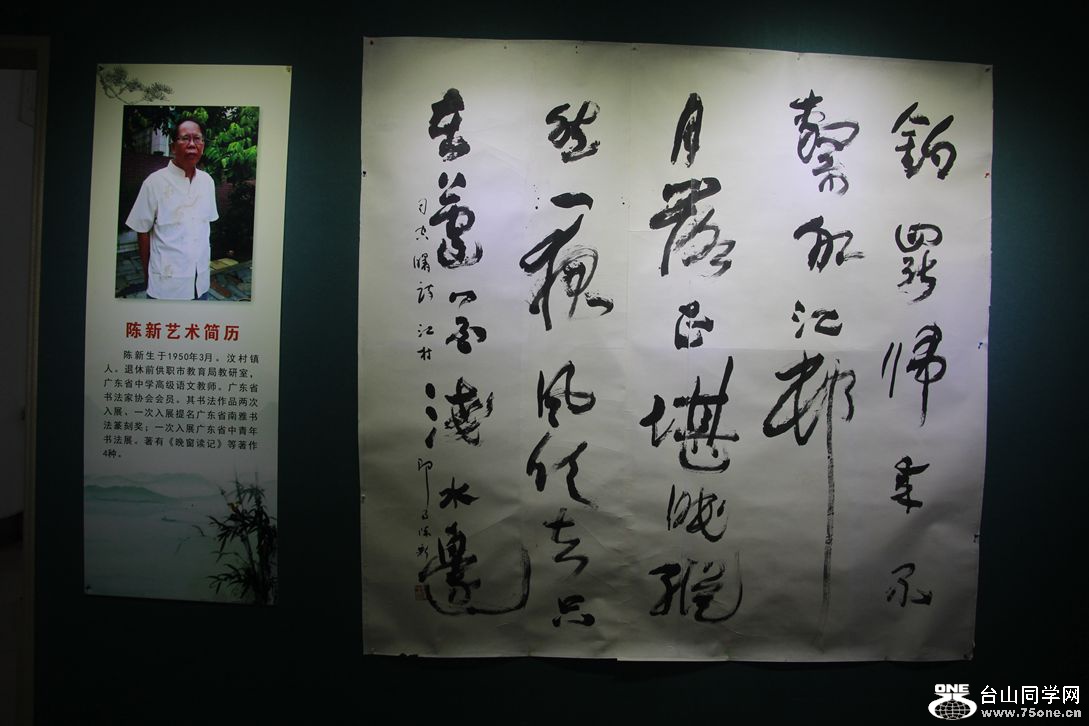 陈新艺术简历
陈新生于1950年3月。汶村镇
人。退休前供职市教育局教研室，
广东省中学高级语文教师。广东省
书法家协会会员。其书法作品两次
入展、一次入展提名广东省南雅书
法篆刻奖；一次入展广东省中青年
书法展。著有《晚窗读记》等著作
4种。
釣罷歸來不
繫船江村
月落正堪眠縱
然一夜風吹去只
在蘆花淺水邊
司空曙詩江村即事陳新
ONE
台山同学网
www.75one.cn